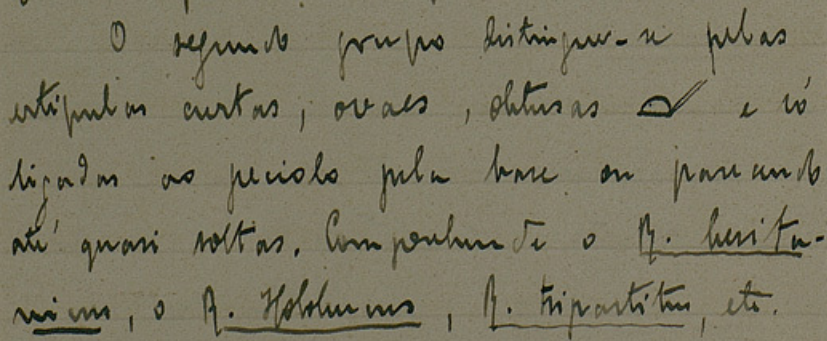 O segundo grupo distingue-se pelas
estipulas curtas, ovaes, obtusas e só
ligadas ao peciolo pela base ou parecendo
até quasi soltas. Comprehende o R. lusita-
nicus, o R. Hololeucus, R. tripartitus, etc.